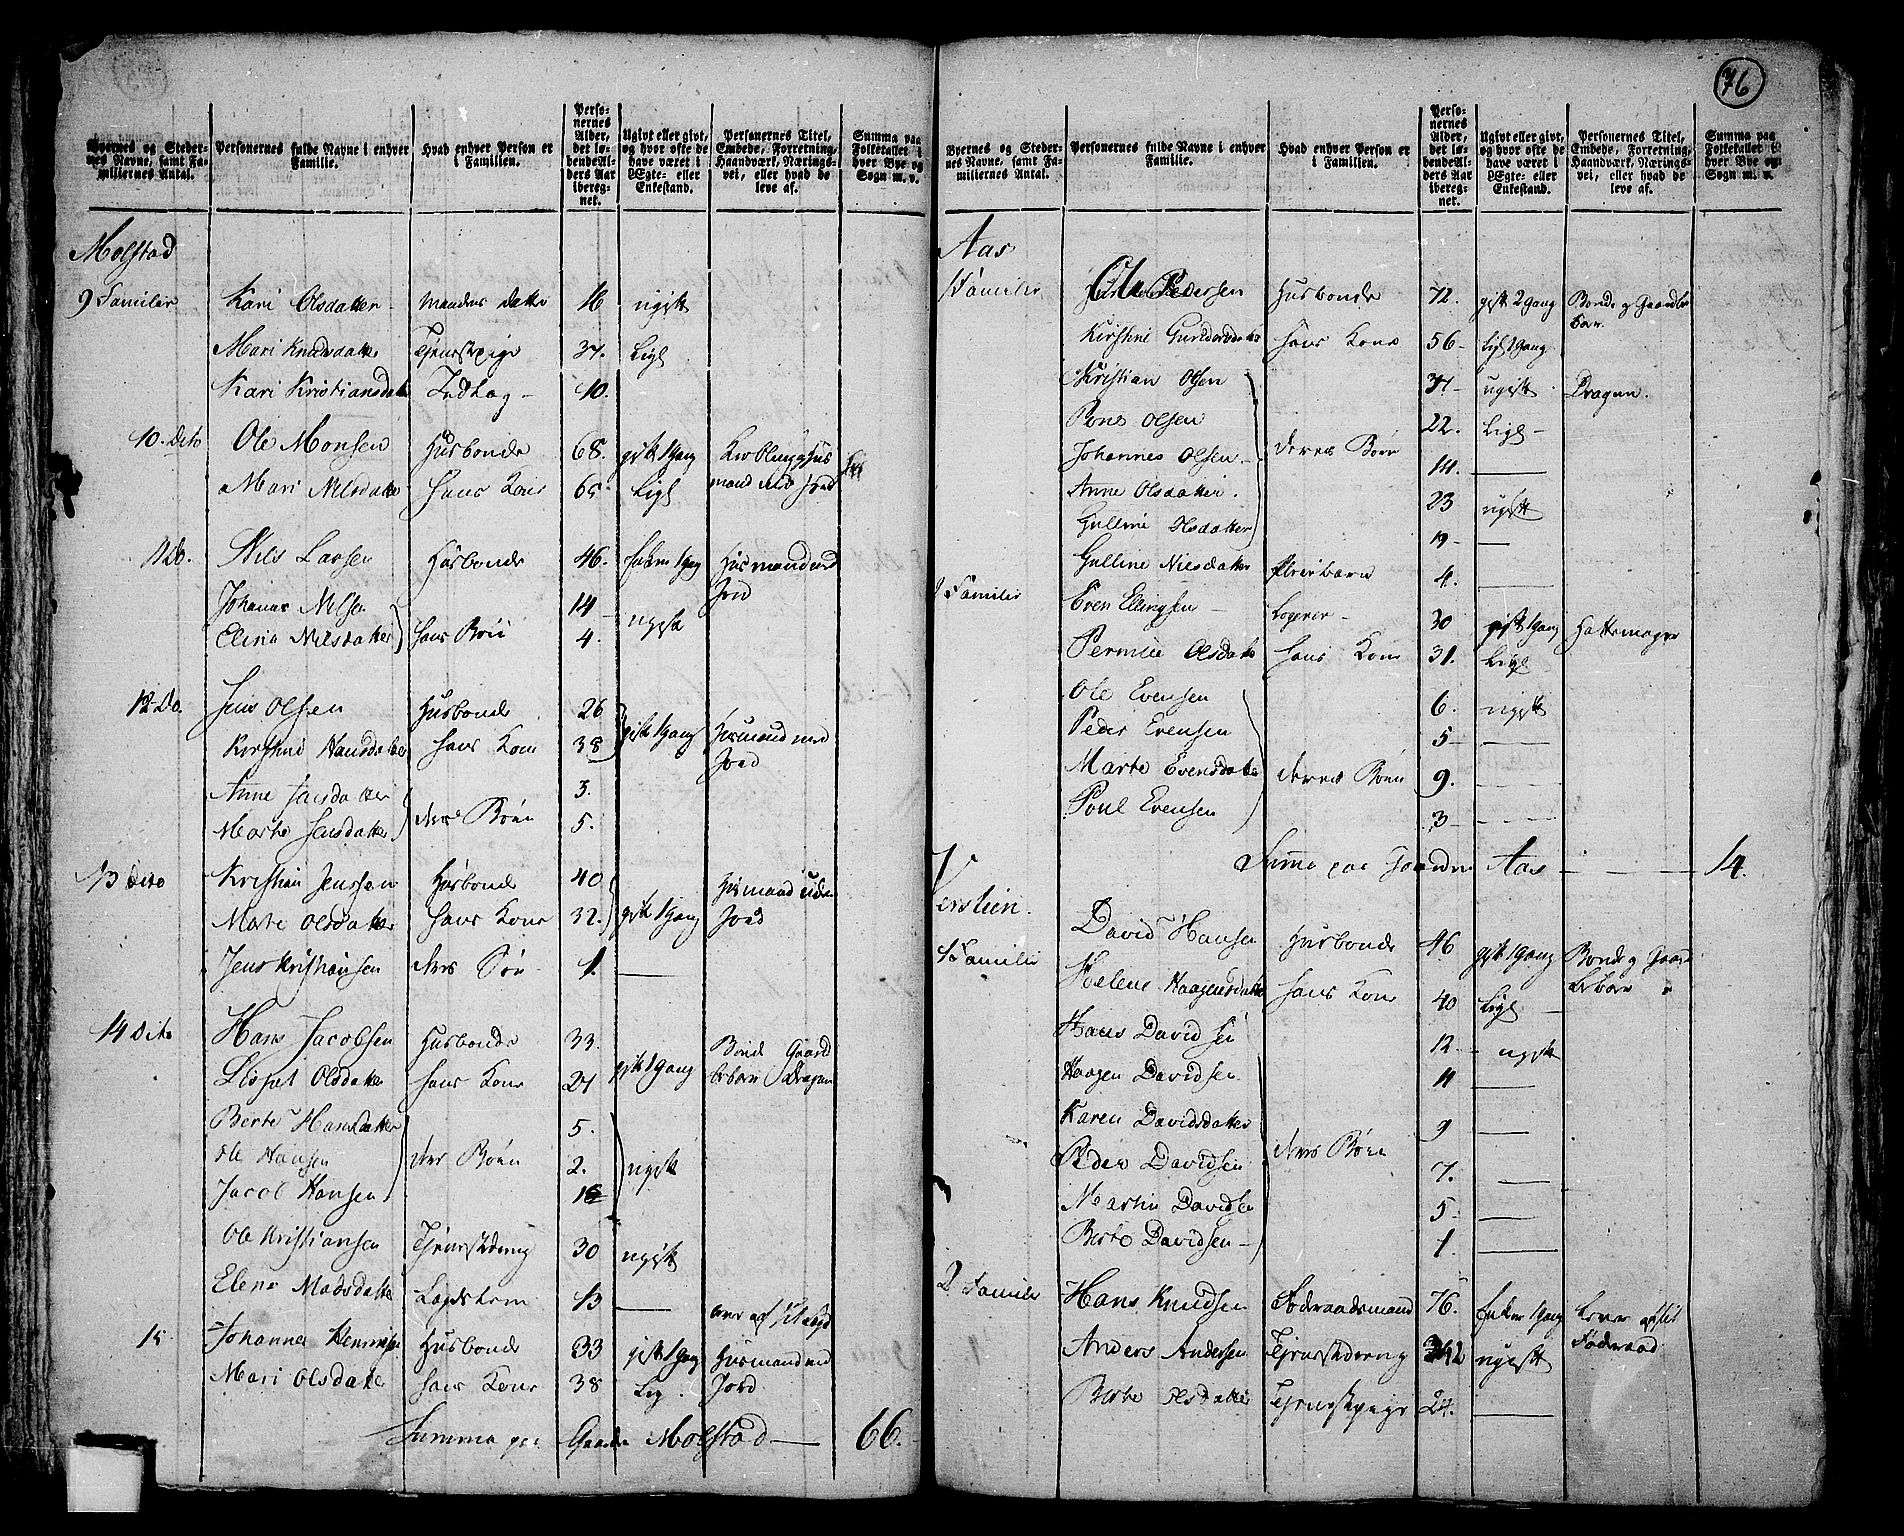 76
Byernes og Steder-
nes Navne, samt Fa-
miliernes Antal.
Personernes fulde Navne i enhver
Familie.
Hvad enhver Person er
i Familien.
Perso-
nernes
Alder,
det lø-
bende Al-
ders Aar
ibereg-
net.
Ugivt eller givt,
og hvor ofte de
have været i
Ægte- eller
Enkestand.
Personernes Titel,
Embede, Forretning,
Haandværk, Nærings-
vei, eller hvad de
leve af.
Summa paa
Folketallet i
hver Bye og
Sogn m. v.
Molstad
9 Familie Kari Olsdatter Mandens Datter 16 ugift
Mari Knudsdatter Tjenestepige 37. Ligl
Kari Kristiansdatter Indlag 10.
10. Dito Ole Monsen Husbonde 68. gift 1 Gang
Mari Nilsdatter Hans Kone 65 Ligl mand med Jord
11 Do. Nils Larsen Husbonde 46. 1 Gang Husmand med
Johanes Nilsen 14 ugift Jord
Elina Nilsdatter Hans Børn 4.
12 Do. Jens Olsen Husbonde 26 gift 1 Gang Husmand med
Kirstine Hansdatter Hans Kone 38 Jord
Anne Jensdatter Deres Børn 3.
Marte Jensdatter 5.
13 Dito Kristian Jenssen Husbonde 40 gift 1 Gang Husmand uden
Marte Olsdatter Hans Kone 32. Jord
Jens Kristiansen Deres Søn 1.
14 Dito Hans Jacobsen Husbonde 33. gift 1 Gang Bonde Gaard
Lispet Olsdatter Hans Kone 27 beboer Dragon
Berte Hansdatter 5.
Ole Hansen Deres Børn 2. ugift
Jacob Hansen
Ole Kristiansen Tjenestedreng 30 ugift
Elena Madsdatter 13
15 Johannes Henriksen Husbonde 33 gift 1 Gang Husmand med
Mari Olsdatter Hans Kone 38 Lig. Jord
Summa paa Gaarden Molstad 66.
Byernes og Steder-
nes Navne, samt Fa-
miliernes Antal.
Personernes fulde Navne i enhver
Familie.
Hvad enhver Person er
i Familien.
Perso-
nernes
Alder,
det lø-
bende Al-
ders Aar
ibereg-
net.
Ugivt eller givt,
og hvor ofte de
have været i
Ægte- eller
Enkestand.
Personernes Titel,
Embede, Forretning,
Haandværk, Nærings-
vei, eller hvad de
leve af.
Summa paa
Folketallet i
hver Bye og
Sogn m. v.
Aas
1 Familie Ole Pedersen Husbonde 72. gift 2 Gang Bonde og Gaard
Kirstine Hans Kone 56 Ligl 1 Gang
Kristian Olsen ugift Dragon.
Olsen 22. Ligl
Johannes Olsen Deres Børn 14.
Anne Olsdatter. 23 ugift
Gulline Olsdatter 19
Gulline Nilsdatter Pleiebarn 4.
2 Familie Even Ellingsen Logerer 30 gift 1 Gang Hattemager
Pernille Olsdatter Hans Kone 31. Ligl
Ole Evensen 6. ugift
Peder Evensen 5
Marte Evensdatter Deres Børn 9.
Poul Evensen 3
Summa paa Gaarden Aas 14.
1 Familie David Hansen Husbonde 46 gift 1 Gang Bonde og Gaard
Helene Haagensdatter Hans Kone 40 Ligl beboer
Hans Davidsen 12 ugift
Haagen Davidsen 11
Karen Davidsdatter 9
Peder Davidsen Deres Børn 7.
Martin Davidsen 5
Berte Davidsen 1.
2 Familie Hans Knudsen Føderaadsmand 76. Enkem 1 Gang Lever af sit
Anders Andersen Tjenestedreng ugift Føderaad
Berte Olsdatter Tjenestepige 24.